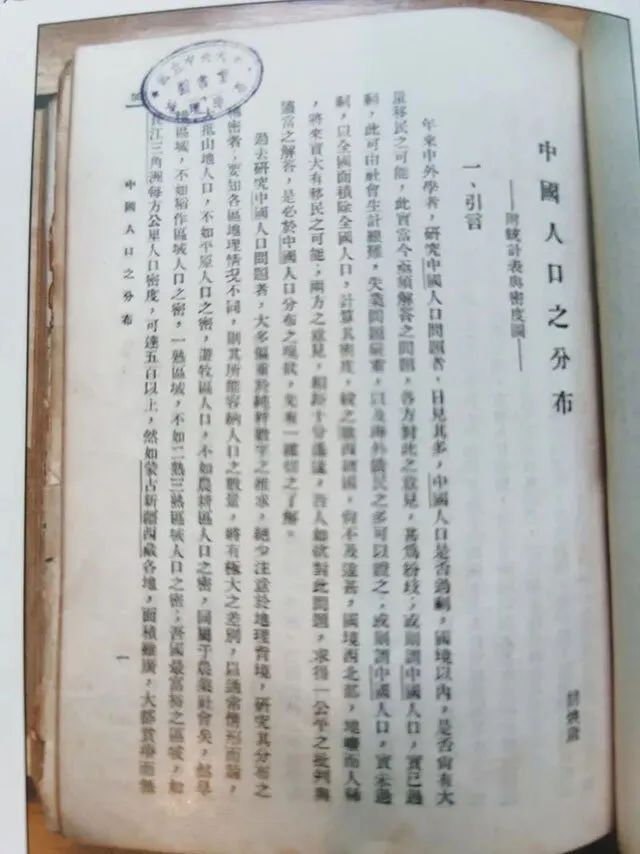 中國人口之分布
——附統計表與密度圖——
胡煥庸
一、引言
年來中外學者，研究中國人口問題者，日見其多，中國人口是否過剩，國境以內，是否尚有大
量移民之可能，此實當今亟須解答之問題，各方對此之意見，甚為紛歧；或則謂中國人口，實已過
剩，此可由社會生計艱難，失業問題嚴重，以及海外僑民之多可以證之，或則謂中國人口，實未過
剩，以全國面積除全國人口，計算其密度，較之歐西諸國，尚不及遠甚，國境西北部，地曠而人稀
，將來實大有移民之可能；兩方之意見，相差十分遙遠，吾人如欲對此問題，求得一公平之批判與
適當之解答，是必於中國人口分布之現狀，先有一確切之了解。
過去研究中國人口問題者，大多偏重於純粹數字之推求，絕少注意於地理背境，研究其分布之
稀密者；要知各區地理情況不同，則其所能容納人口之數量，將有極大之差別，以通常情形而論，
大抵山地人口，不如平原人口之密，游牧區人口，不如農耕區人口之密，同屬于農業社會矣，
區域，不如稻作區域人口之密，一熟區域，不如二熟三熟區域人口之密；吾國最富裕之區域，如
江三角洲每方公里人口密度，可達五百以上，然如蒙古新疆西藏各地，面積雖廣，大都貧瘠而無
中國人口之分布
一
圖書室